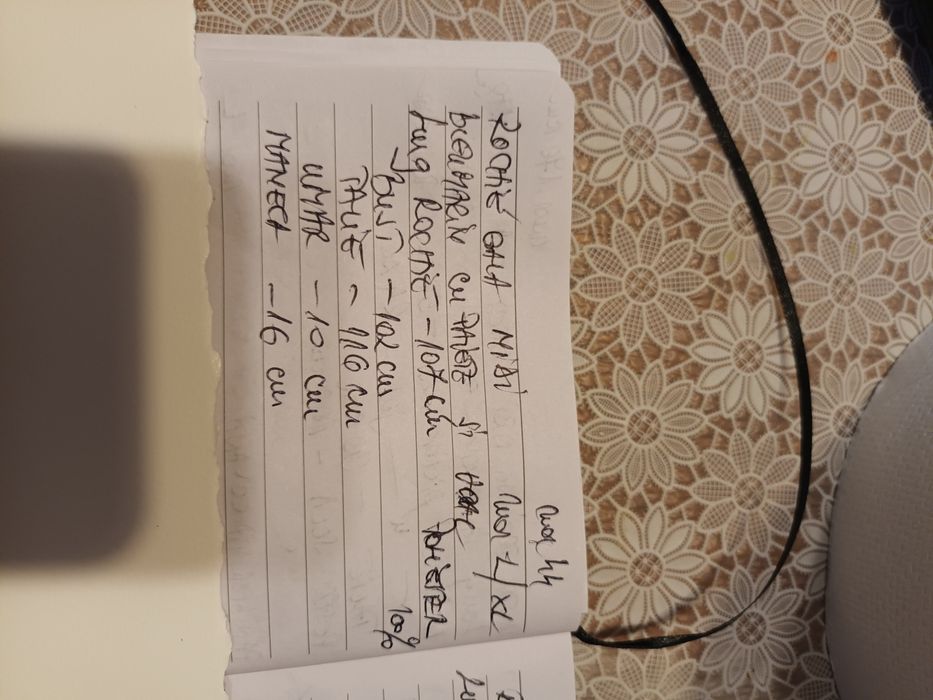 mar 44
ROCHIE GALA MIDI mar L/XL
BLEUMARIN cu PAIETE SI
lung ROCHIE - 107 cm POLIESTER
BUST - 102 cm 100%
TALIE - 116 cm
UMAR - 10 cm
MANECA - 16 cm